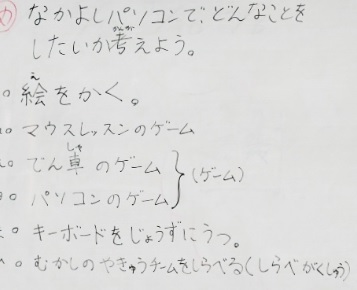 め なかよしパソコンで、どんなことを
したいか考えよう。
かんが
絵をかく。
え
マウスレッスンのゲーム
でん卓のゲーム
しゃ
パソコンのゲーム
(ゲーム)
キーボードをじょうずにうつ。
むかしのやきゅうチームをしらべる(しらべがくしゅう)